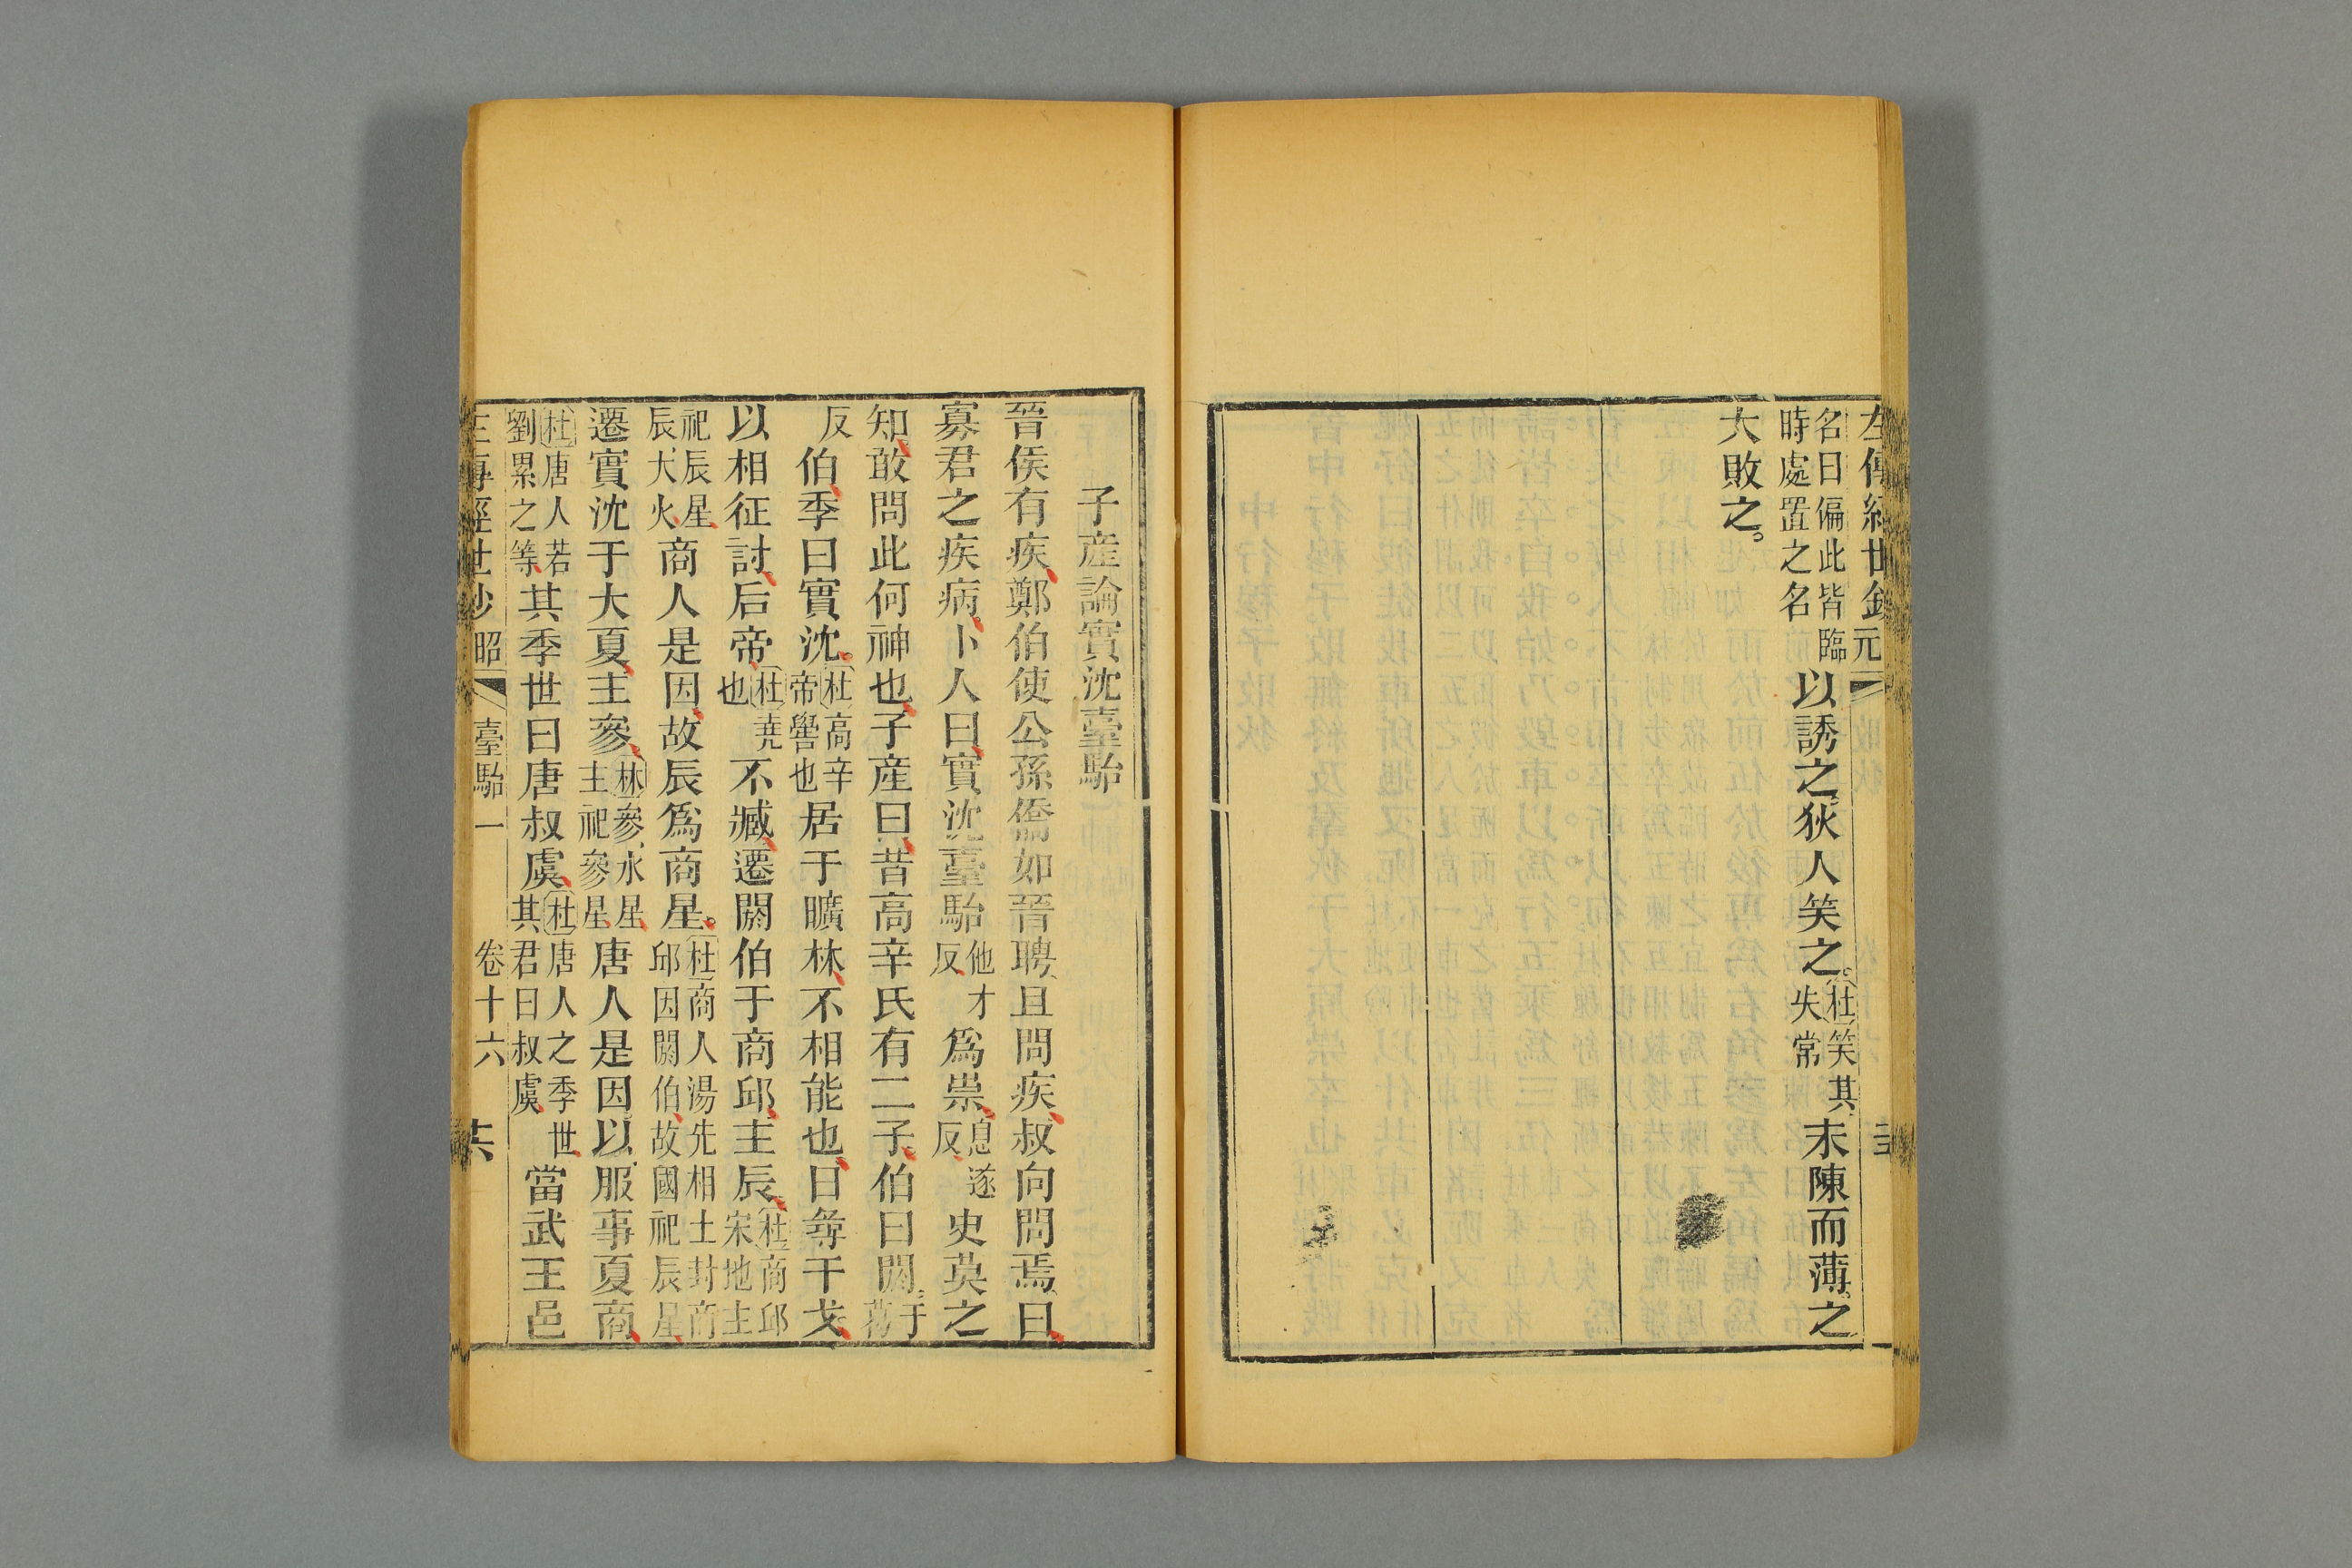 左傳經世鈔 元
名曰偏此皆臨時處置之名以誘之狄人笑之杜笑其失常未陳而薄之
大敗之
子產論實沈臺駘
晉侯有疾鄭伯使公孫僑如晉聘且問疾叔向問焉曰
寡君之疾病卜人曰實沈臺駘他才反爲祟息遂反史莫之
知敢問此何神也子產曰昔高辛氏有二子伯曰閼于葛
反伯季曰實沈杜高辛帝嚳也居于曠林不相能也日尋干戈
以相征討后帝杜堯也不臧遷閼伯于商邱主辰杜商邱宋地主
祀辰星辰大火商人是因故辰爲商星杜商人湯先相土封商邱因閼伯故國祀辰星
遷實沈于大夏主參林參水星主祀參星唐人是因以服事夏商
杜唐人若劉累之等其季世曰唐叔虞杜唐人之季世其君曰叔虞當武王邑
左傳經世鈔 昭 臺駘一 卷十六